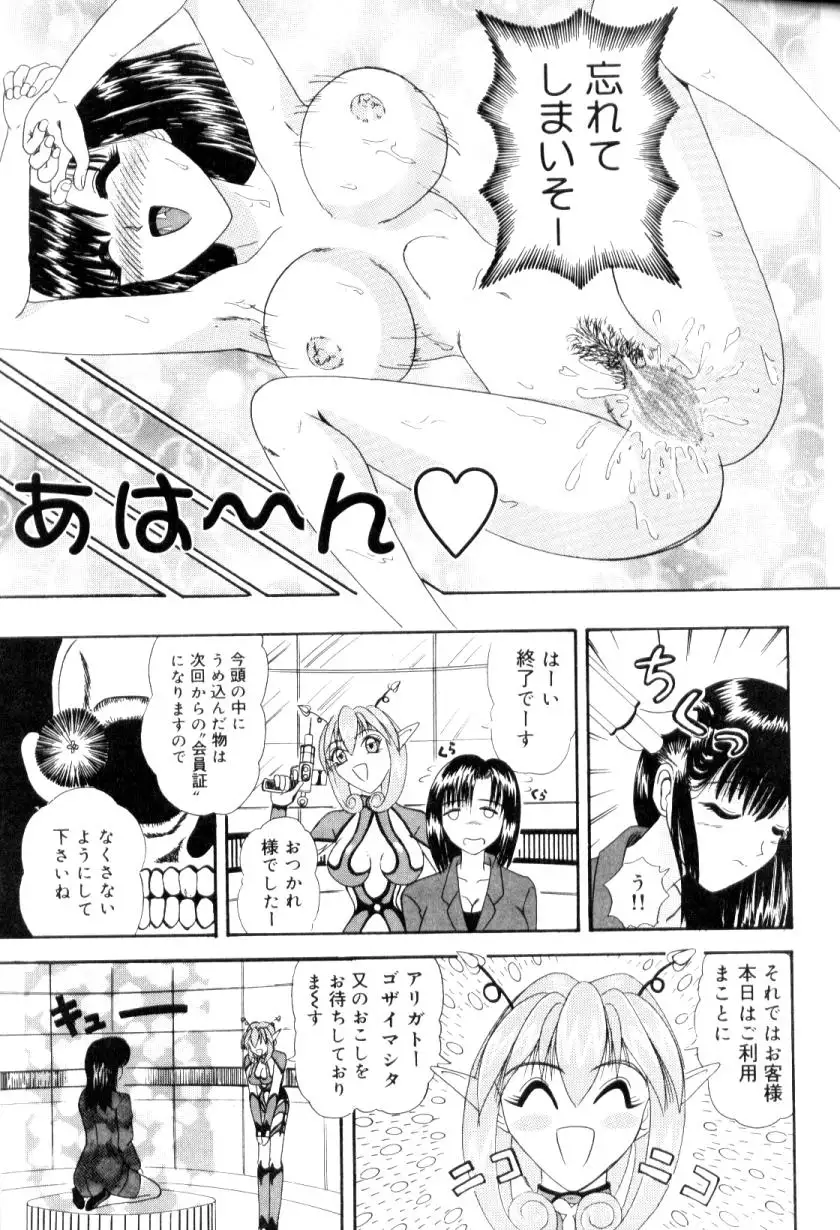 忘れて
しまいそー
あは〜〜ん♡
ちくっ
う!!
はーい
終了でーす
くら
くら
おつかれ
様でしたー
今頭の中に
うめ込んだ物は
次回からの“会員証”
になりますので
なくさない
ようにして
下さいね
それではお客様
本日はご利用
まことに
ニコ
ニコ
アリガトー
ゴザイマシタ
又のおこしを
お待ちしており
ま〜す
キュー